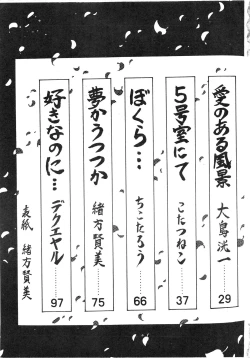 愛のある風景 大島洸一 ……… 29
5号室にて こたつねこ ……… 37
ぼくら… ちこたろう ……… 66
夢かうつつか 緒方賢美 ……… 75
好きなのに… デクエヤル ……… 97
表紙 緒方賢美